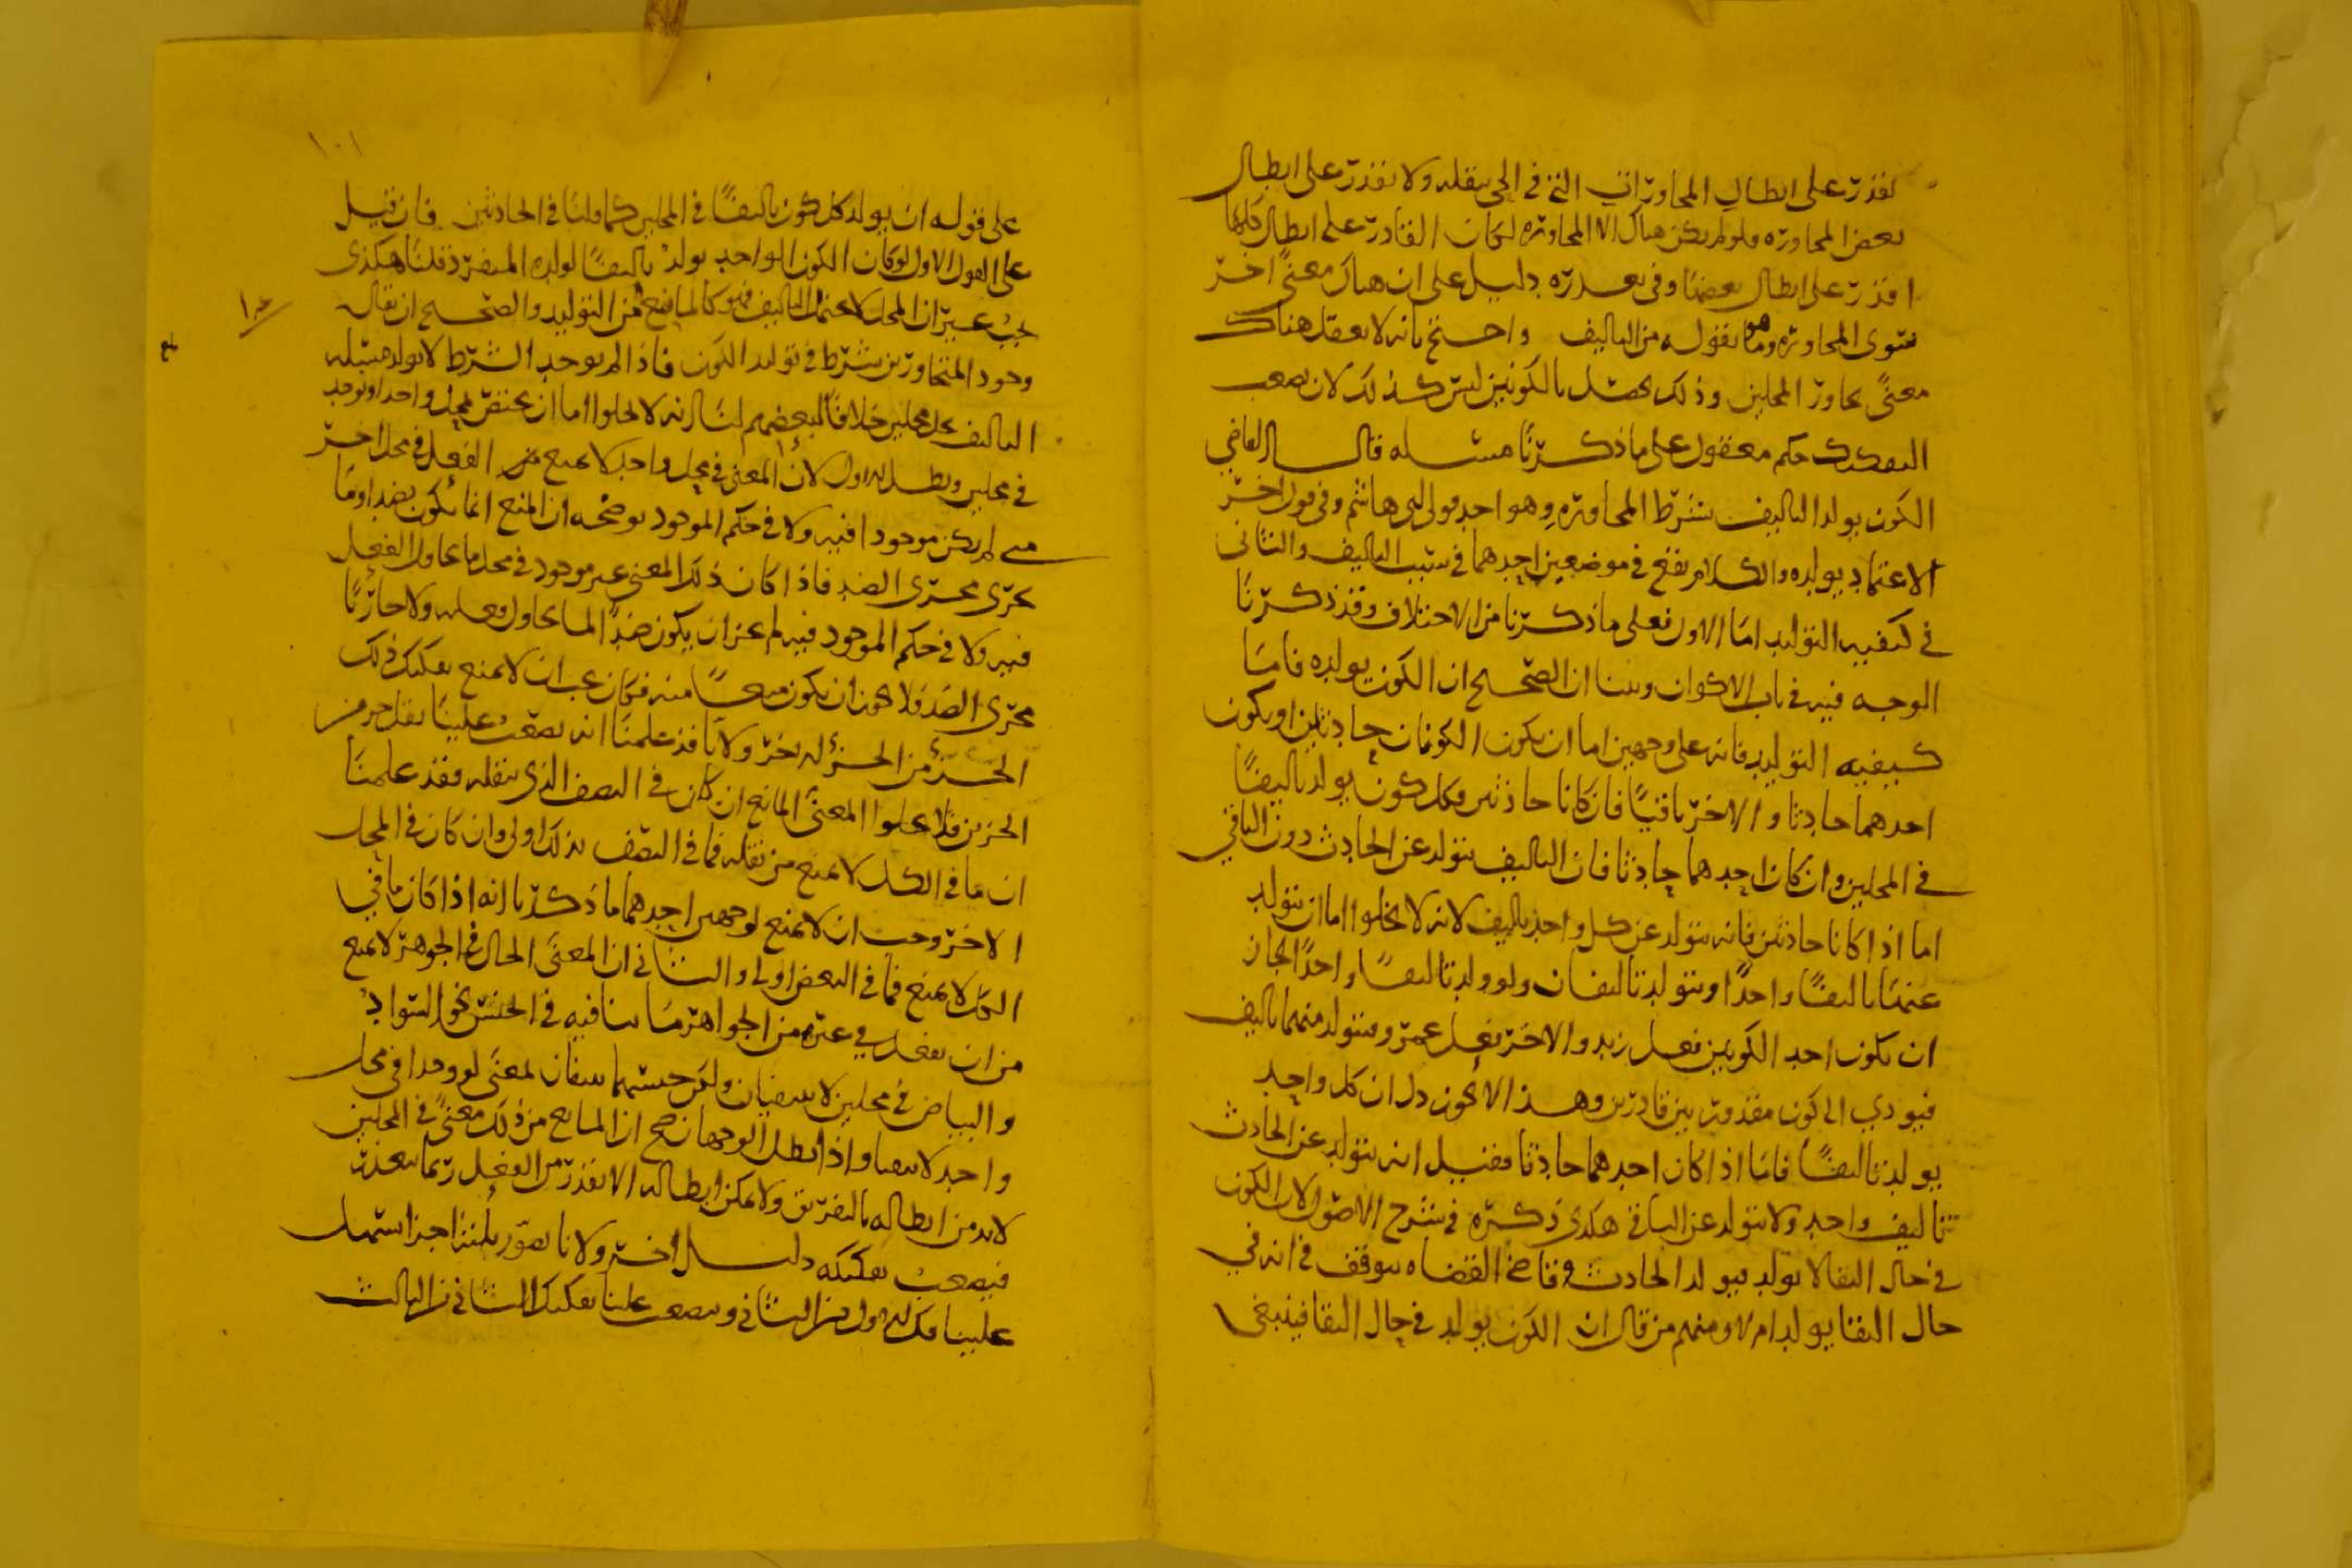 نقدر على ابطال المجاورات التي في الحي بنقله ولا نقدر على ابطال
بعض المجاوره ولو لم يكن هناك الا المجاوره لكان القادر على ابطال كلها
اقدر على ابطال بعضها وفي تعذره دليل على ان هناك معنًى اخر
سوى المجاوره وهو ما نقوله من التاليف واحتج بانه لا يعقل هناك
معنًى بجاور المحلين وذلك يحصل بالكونين ليس كذلك لان صعب
التفكيك حكم معقول على ما ذكرنا مسئله قال القاضي
الكون يولد التاليف بشرط المجاوره وهو احد قولي ابي هاشم وفي قول اخر
الاعتماد يولده والكلام يقع في موضعين احدهما في سبب التاليف والثاني
في كيفيه التوليد اما الاول فعلى ما ذكرنا من الاختلاف وقد ذكرنا
الوجه فيه في باب الاكوان وبينا ان الصحيح ان الكون يولده فاما
كيفيه التوليد فانه على وجهين اما ان يكون الكونان حادثين او يكون
احدهما حادثا والاخر باقيًا فان كانا حادثين فكل كون يولد تاليفًا
في المحلين وان كان احدهما حادثا فان التاليف يتولد عن الحادث دون الباقي
اما اذا كانا حادثين فانه يتولد عن كل واحد تاليف لانه لا يخلوا اما ان يتولد
عنهما تاليفًا واحدًا او يتولد تاليفان ولو ولد تاليفًا واحدًا لجاز
ان يكون احد الكونين فعل زيد والاخر فعل عمرو ويتولد منهما تاليف
فيودي الى كون مقدور بين قادرين وهذا لا يجوز دل ان كل واحد
يولد تاليفًا فاما اذا كان احدهما حادثا فقيل انه يتولد عن الحادث
تاليف واحد ولا يتولد عن الباقي هكذى ذكره في شرح الاصول لان الكون
في حال البقا لا يولد فيولد الحادث وقاضي القضاه يتوقف في انه في
حال البقا يولد ام لا ومنهم من قال ان الكون يولد في حال البقا فينبغي
١٠١
على قوله ان يولد كل كون تاليفًا في المحلين كما قلنا في الحادثين فان قيل
على القول الاول لو كان الكون الواحد يولد تاليفًا لولده المنفرد قلنا هكذى
يجب غير ان المحل لا يحتمل التاليف فهو كالمانع من التوليد والصحيح ان يقال
وجود المتجاورين شرط في توليد الكون فاذا لم يوجد الشرط لا يولد مسئله
التاليف يحل محلين خلافًا لبعضهم لنا انه لا يخلوا اما ان يختص بمحل واحد او يوجد
في محلين ويبطل الاول لان المعنى في محل واحد لا يمنع من الفعل في محل اخر
متى لم يكن موجودا فيه ولا في حكم الموجود يوضحه ان المنع انما يكون بضد او ما
يجري مجرى الضد فاذا كان ذلك المعنى غير موجود في محل ما يحاول الفعل
فيه ولا في حكم الموجود فيه لم يجز ان يكون ضدًا لما يحاول فعله ولا جاريًا
مجرى الضد فلا يجوز ان يكون منعًا منه فكان يجب ان لا يمنع تفكيك ذلك
الجزء من الجزء لم يجز ولانا قد علمنا انه يصعب علينا نقل جز من
الجزين فلا يخلوا المعنى المانع ان كان في النصف الذي ننقله فقد علمنا
ان ما في الكل لا يمنع من نقله فما في النصف بذلك اولى وان كان في المحل
الاخر وجب ان لا يمنع لوجهين احدهما ما ذكرنا انه اذا كان ما في
الكل لا يمنع فما في البعض اولى والثاني ان المعنى الحال في الجوهر لا يمنع
من ان يفعل في غيره من الجواهر ما ينافيه في الجنس نحو السواد
والبياض في محلين لا يتنافيان ولكن جنسهما يتنافيان لمعنى لو وجدا في محل
واحد لا نتفيا واذا بطل الوجهان صح ان المانع من ذلك معنًى في المحلين
لابد من ابطاله بالتفريق ولا يمكن ابطاله الا بقدر من الفعل ربما يتعذر
فيصعب تفكيكه دليل اخر ولانا نصور ثلثه اجزا يسهل
علينا فك الاول من الثاني ويصعب علينا تفكيك الثاني من الثالث